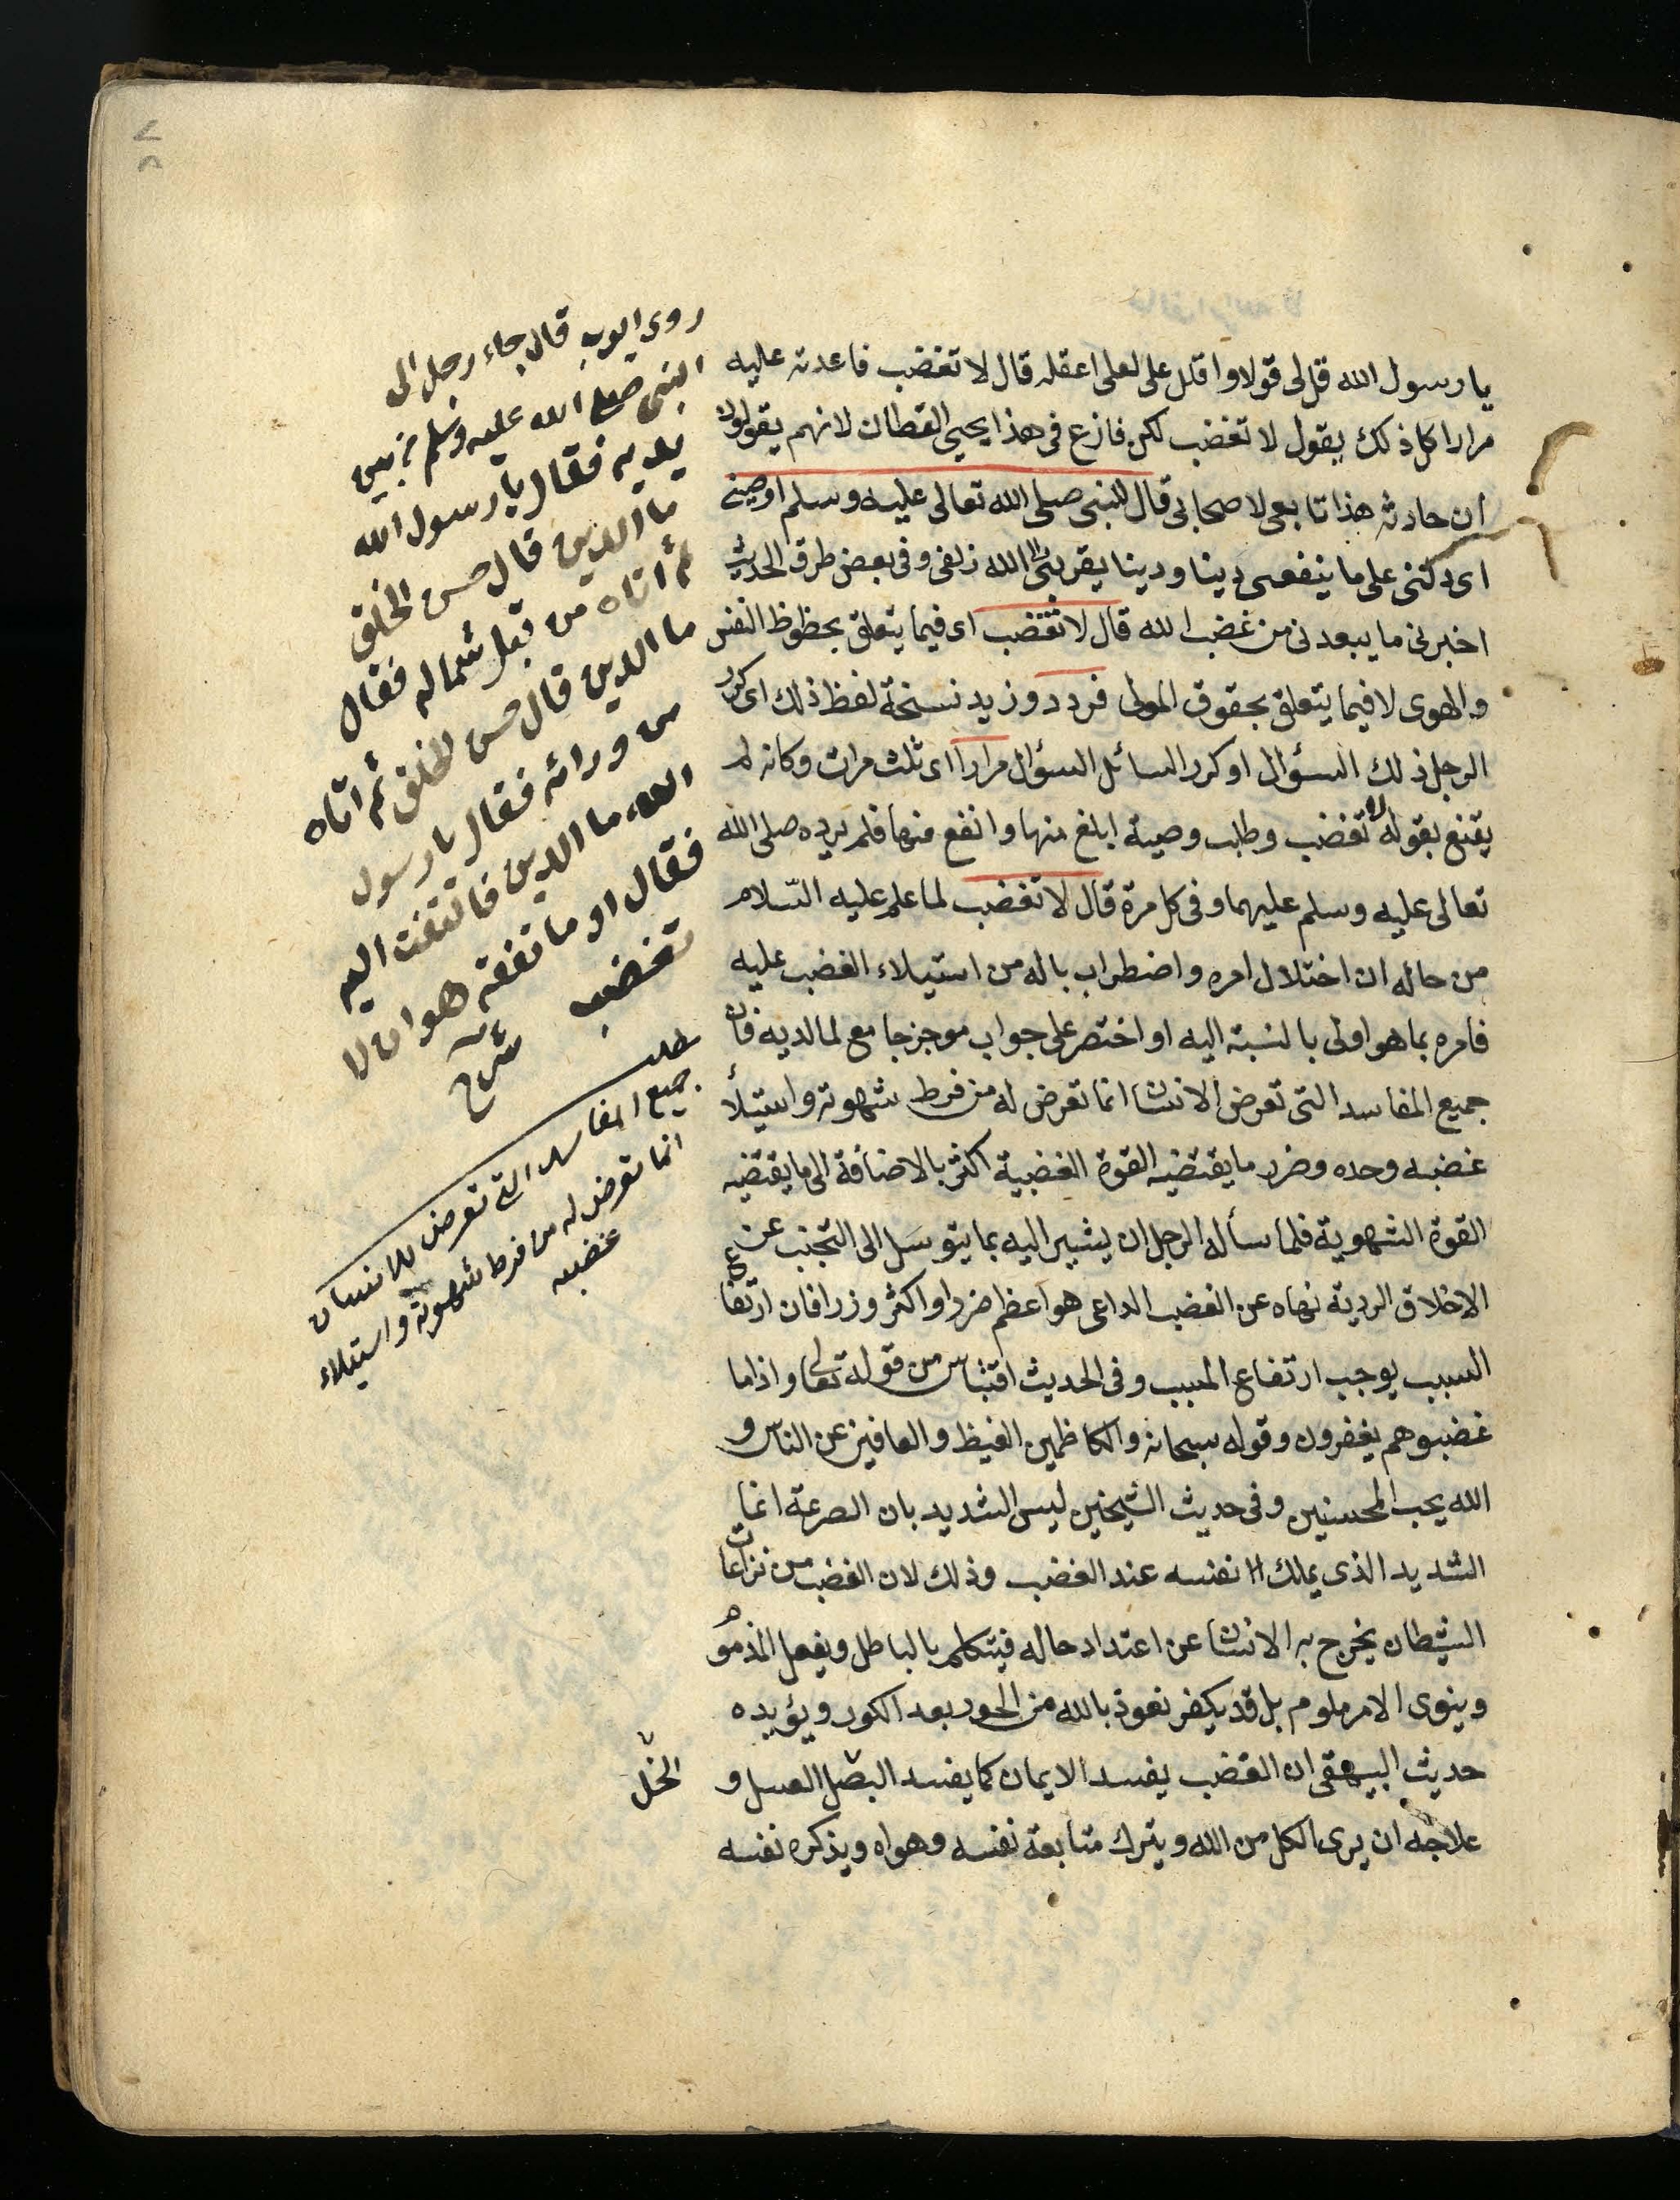 يا رسول الله قل لى قولا واقلل على لعلى اعقله قال لا تغضب فاعدته عليه
مرارا كل ذلك يقول لا تغضب لكن فازع فى هذا يحيى القطان لانهم يقولون
ان حارثه هذا تابعى لا صحابى قال للنبى صلى الله تعالى عليه وسلم اوصنى
اى دلنى على ما ينفعنى دينا ودينا يقربنى الى الله زلفى وفى بعض طرق الحديث
اخبرنى ما يبعدنى من غضب الله قال لا تغضب اى فيما يتعلق بحظوظ النفس
والهوى لا فيما يتعلق بحقوق المولى فردد وزيد نسخة لفظ ذلك اى كرر
الرجل ذلك السؤال او كرر السائل السؤال مرارا اى ثلث مرات وكانه لم
يقنع بقوله لا تغضب وطلب وصية ابلغ منها وانفع منها فلم يرده صلى الله
تعالى عليه وسلم عليهما وفى كل مرة قال لا تغضب لما علم عليه السّلام
من حاله ان اختلال امره واضطراب باله من استيلاء الغضب عليه
فامره بما هو اولى بالنسبة اليه او اختصر على جواب موجز جامع لما لديه فان
جميع المفاسد التى تعرض الانسان انما تعرض له من فرط شهوته واستيلأ
غضبه وحده وضرر ما يقتضيه القوة الغضبية اكثر بالاضافة الى ما يقتضيه
القوة الشهوية فلما سأله الرجل ان يشير اليه بما يتوسل الى التجنب عن
الاخلاق الردية نهاه عن الغضب الداعى هو اعظم ضررا واكثر وزرا فان ارتفاع
السبب يوجب ارتفاع المسبب وفى الحديث اقتباس من قوله تعالى واذا ما
غضبوا هم يغفرون وقوله سبحانه والكاظمين الغيظ والعافين عن الناس و
الله يحب المحسنين وفى حديث الشيخين ليس الشديد بان الصرعة انما
الشديد الذى يملك نفسه عند الغضب وذلك لان الغضب من نزعات
الشيطان يخرج به الانسان عن اعتداد حاله فيتكلم بالباطل ويفعل المذموم
وينوى الامر ملوم بل قد يكفر نعوذ بالله من الحور بعد الكور ويؤيده
حديث البيهقى ان الغضب يفسد الايمان كما يفسد البصل العسل و
علاجه ان يرى الكل من الله ويترك متابعة نفسه وهواه ويذكره نفسه
روى ايوب قال جاء رجل الى
النبى صلى الله عليه وسلم من بين
يديه فقال يا رسول الله
ما الدين قال حسن الخلق
ثم اتاه من قبل شماله فقال
ما الدين قال حسن الخلق ثم اتاه
من ورائه فقال يا رسول
الله ما الدين فالتفت اليه
فقال او ما تفقه هو ان لا
تغضب
شرح
مطلب
جميع المفاسد التى تعرض للانسان
انما تعرض له من فرط شهوته واستيلاء
غضبه
الخّل
٧٨